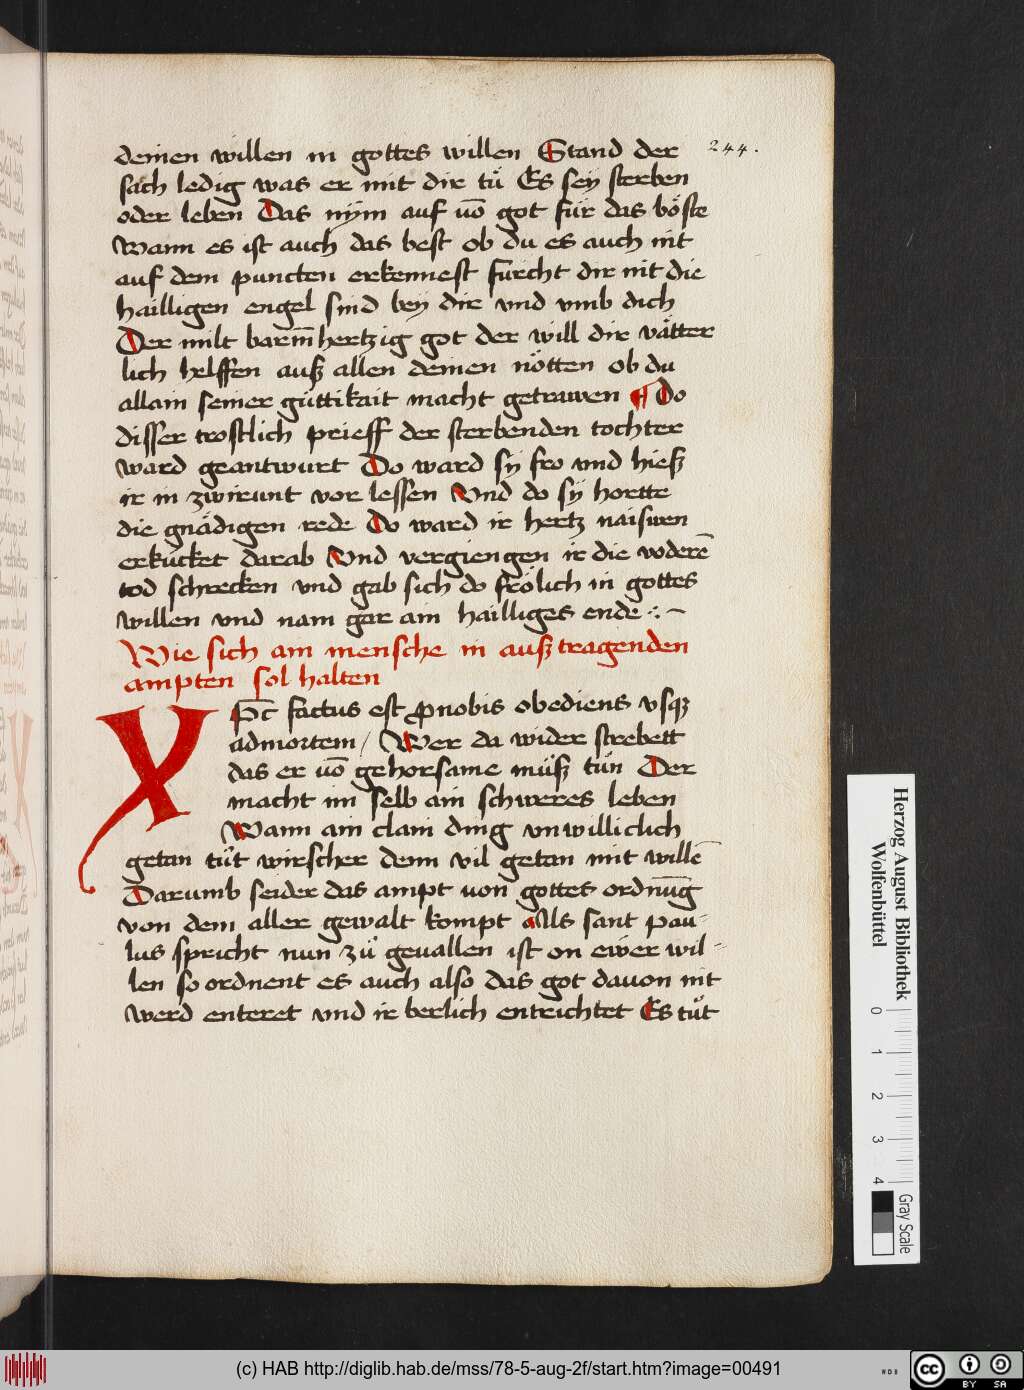 244.
deinen willen in gottes willen Stand der
sach ledig was er mit dir tuͦ Es sey sterben
oder leben Das nym auf võ got fúr das böste
Wann es ist auch das best ob du es auch nit
auf dem puncten erkennest fúrcht dir nit die
hailligen engel sind bey dir vnd vmb dich
Der milt barm̃hertzig got der will dir vätter
lich helffen auß allen deinen nötten ob du
allain seiner gúttikait macht getrawen ¶ Do
disser trostlich prieff der sterbenden tochter
ward geantwurt Do ward sy fro vnd hieß
ir in zwirunt vor lessen Vnd do sy hortte
die gnädigen rede Do ward ir hertz naiswen
erkúcket darab Vnd vergiengen ir die voderē
tod schrecken vnd gab sich do frölich in gottes
willen vnd nam gar ain hailliges ende
Wie sich ain mensche in auß tragenden
ampten sol halten
Xpc̄ factus est ꝓnobis obediens vsqꝫ
admortem / Wer da wider strebett
das er võ gehorsame muͤß tuͤn Der
macht im selb ain schweres leben
Wann ain clain ding vnwilliclich
getan tuͤt wirscher denn vil getan mit willē
Darumb seider das ampt von gottes ordnūg
von dem aller gewalt kompt Als sant pau-
lus spricht nun zuͦ geuallen ist on ewer wil-
len so ordnent es auch also das got davon nit
werd enteret vnd ir berlich entrichtet Es tuͦt
Herzog August Bibliothek
Wolfenbüttel
0
1
2
3
4
Gray Scale
(c) HAB http://diglib.hab.de/mss/78-5-aug-2f/start.htm?image=00491
WDB
cc BY SA